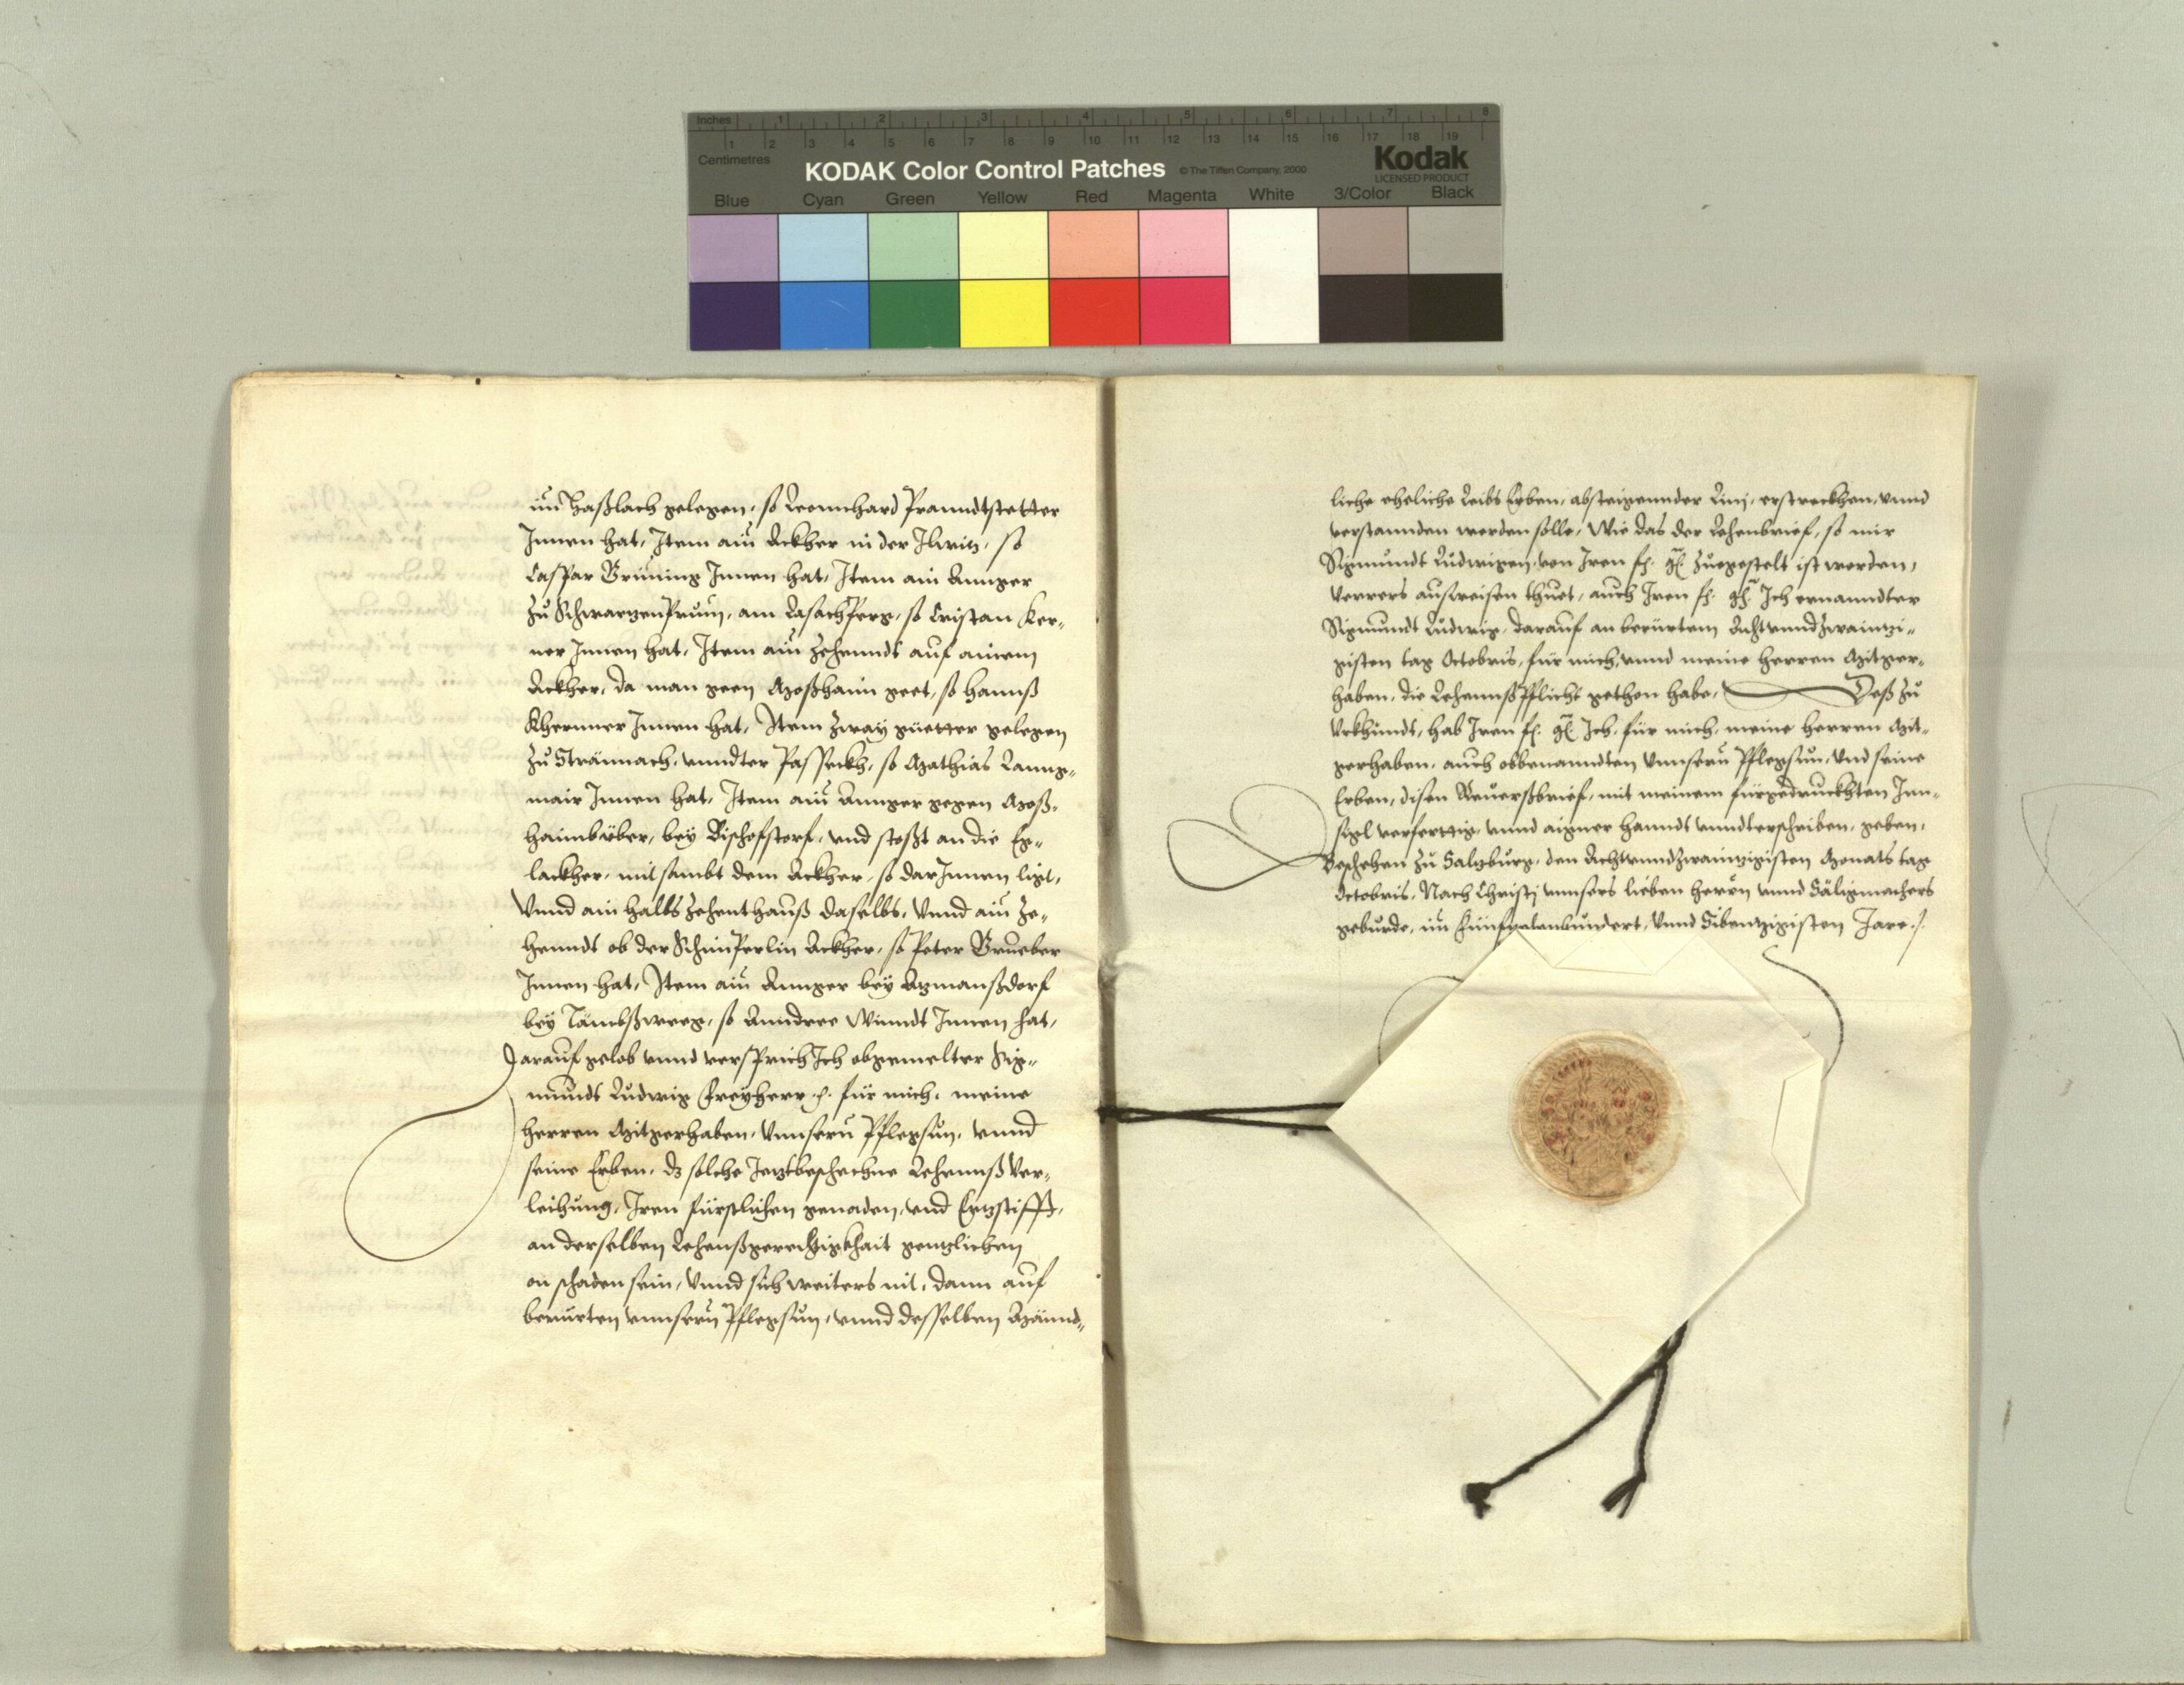 Inches 1 2 3 4 5 6 7 8
1 2 3 4 5 6 7 8 9 10 11 12 13 14 15 16 17 18 19
Centimetres
KODAK Color Control Patches © The Tiffen Company, 2000 Kodak
LICENSED PRODUCT
Blue Cyan Green Yellow Red Magenta White 3/Color Black
im Haßlach gelegen, so Leonnhard Pranndtstetter
Innen hat, Item ain Ackher in der so
Caspar Grüning Innen hat, Item ain Annger
zu Schwarzenprun, am so Cristan Ker-
ner Innen hat, Item ain Zehenndt auf ainem
Ackher, da man geen Moßhaim geet, so Hannß
Khernner Innen hat, Item zway güetter gelegen
zu Strännach, vnndter so Mathias Lanng-
mair Innen hat, Item ain Annger gegen Moß-
haim bey Bischofstorf, vnd stosst an die Eg-
lackher, mit sambt dem Ackher, so darInnen ligt,
Vnnd ain halbs Zehenthauß daselbs, Vnnd ain Ze-
henndt ob der Ackher, so Peter Grueber
Innen hat, Item ain Annger bey Azmanßdorf
bey Tämbßweeg, so Anndree Winndt Innen hat,
Darauf gelob vnnd versprich Ich obgemelter Sig-
mundt Ludwig Freyherr für mich, meine
Herren Mitgerhaben, Vnnsern Pflegsun, vnnd
seine Erben, dz solche Jeztbeschechne Lehennß Ver-
leihung, Iren fürstlichen genaden, vnd Erzstifft,
an derselben Lehenßgerechtigkhait genzlichen
on schaden sein, Vnnd sich weiters nit, dann auf
berürten vnnsern Pflegsun, vnnd desselben Männd-
liche eheliche Leibs Erben, absteigennder Linj, erstreckhen, vnnd
verstannden werden solle, Wie das der Lehenbrief, so mir
Sigmundt Ludwigen, von Iren fr. gn. zuegestelt ist worden,
verrers ausweisen thuet, auch Iren fr. gn. Ich ernanndter
Sigmundt Ludwig, darauf an berürtem Achtvnndzwainzi-
gisten tag Octobris, für mich, vnnd meine Herren Mitger-
haben, die Lehennßpflicht gethon habe, Deß zu
Vrkhundt, hab Iren fr. gn. Ich, für mich, meine Herren Mit-
gerhaben, auch obbenanndten Vnnsern Pflegsun, Vnd seine
Erben, disen Reuerßbrief, mit meinem fürgedruckhten Inn-
sigl verferttig, vnnd aigner hanndt vnndterschriben, geben,
Beschehen zu Salzburg, den Achtvnndzwainzigisten Monats tag
Octobris, Nach Christj vnnsers lieben Herrn vnnd Säligmachers
geburde, im Fünfzehenhundert, Vnnd Sibentzigisten Jare